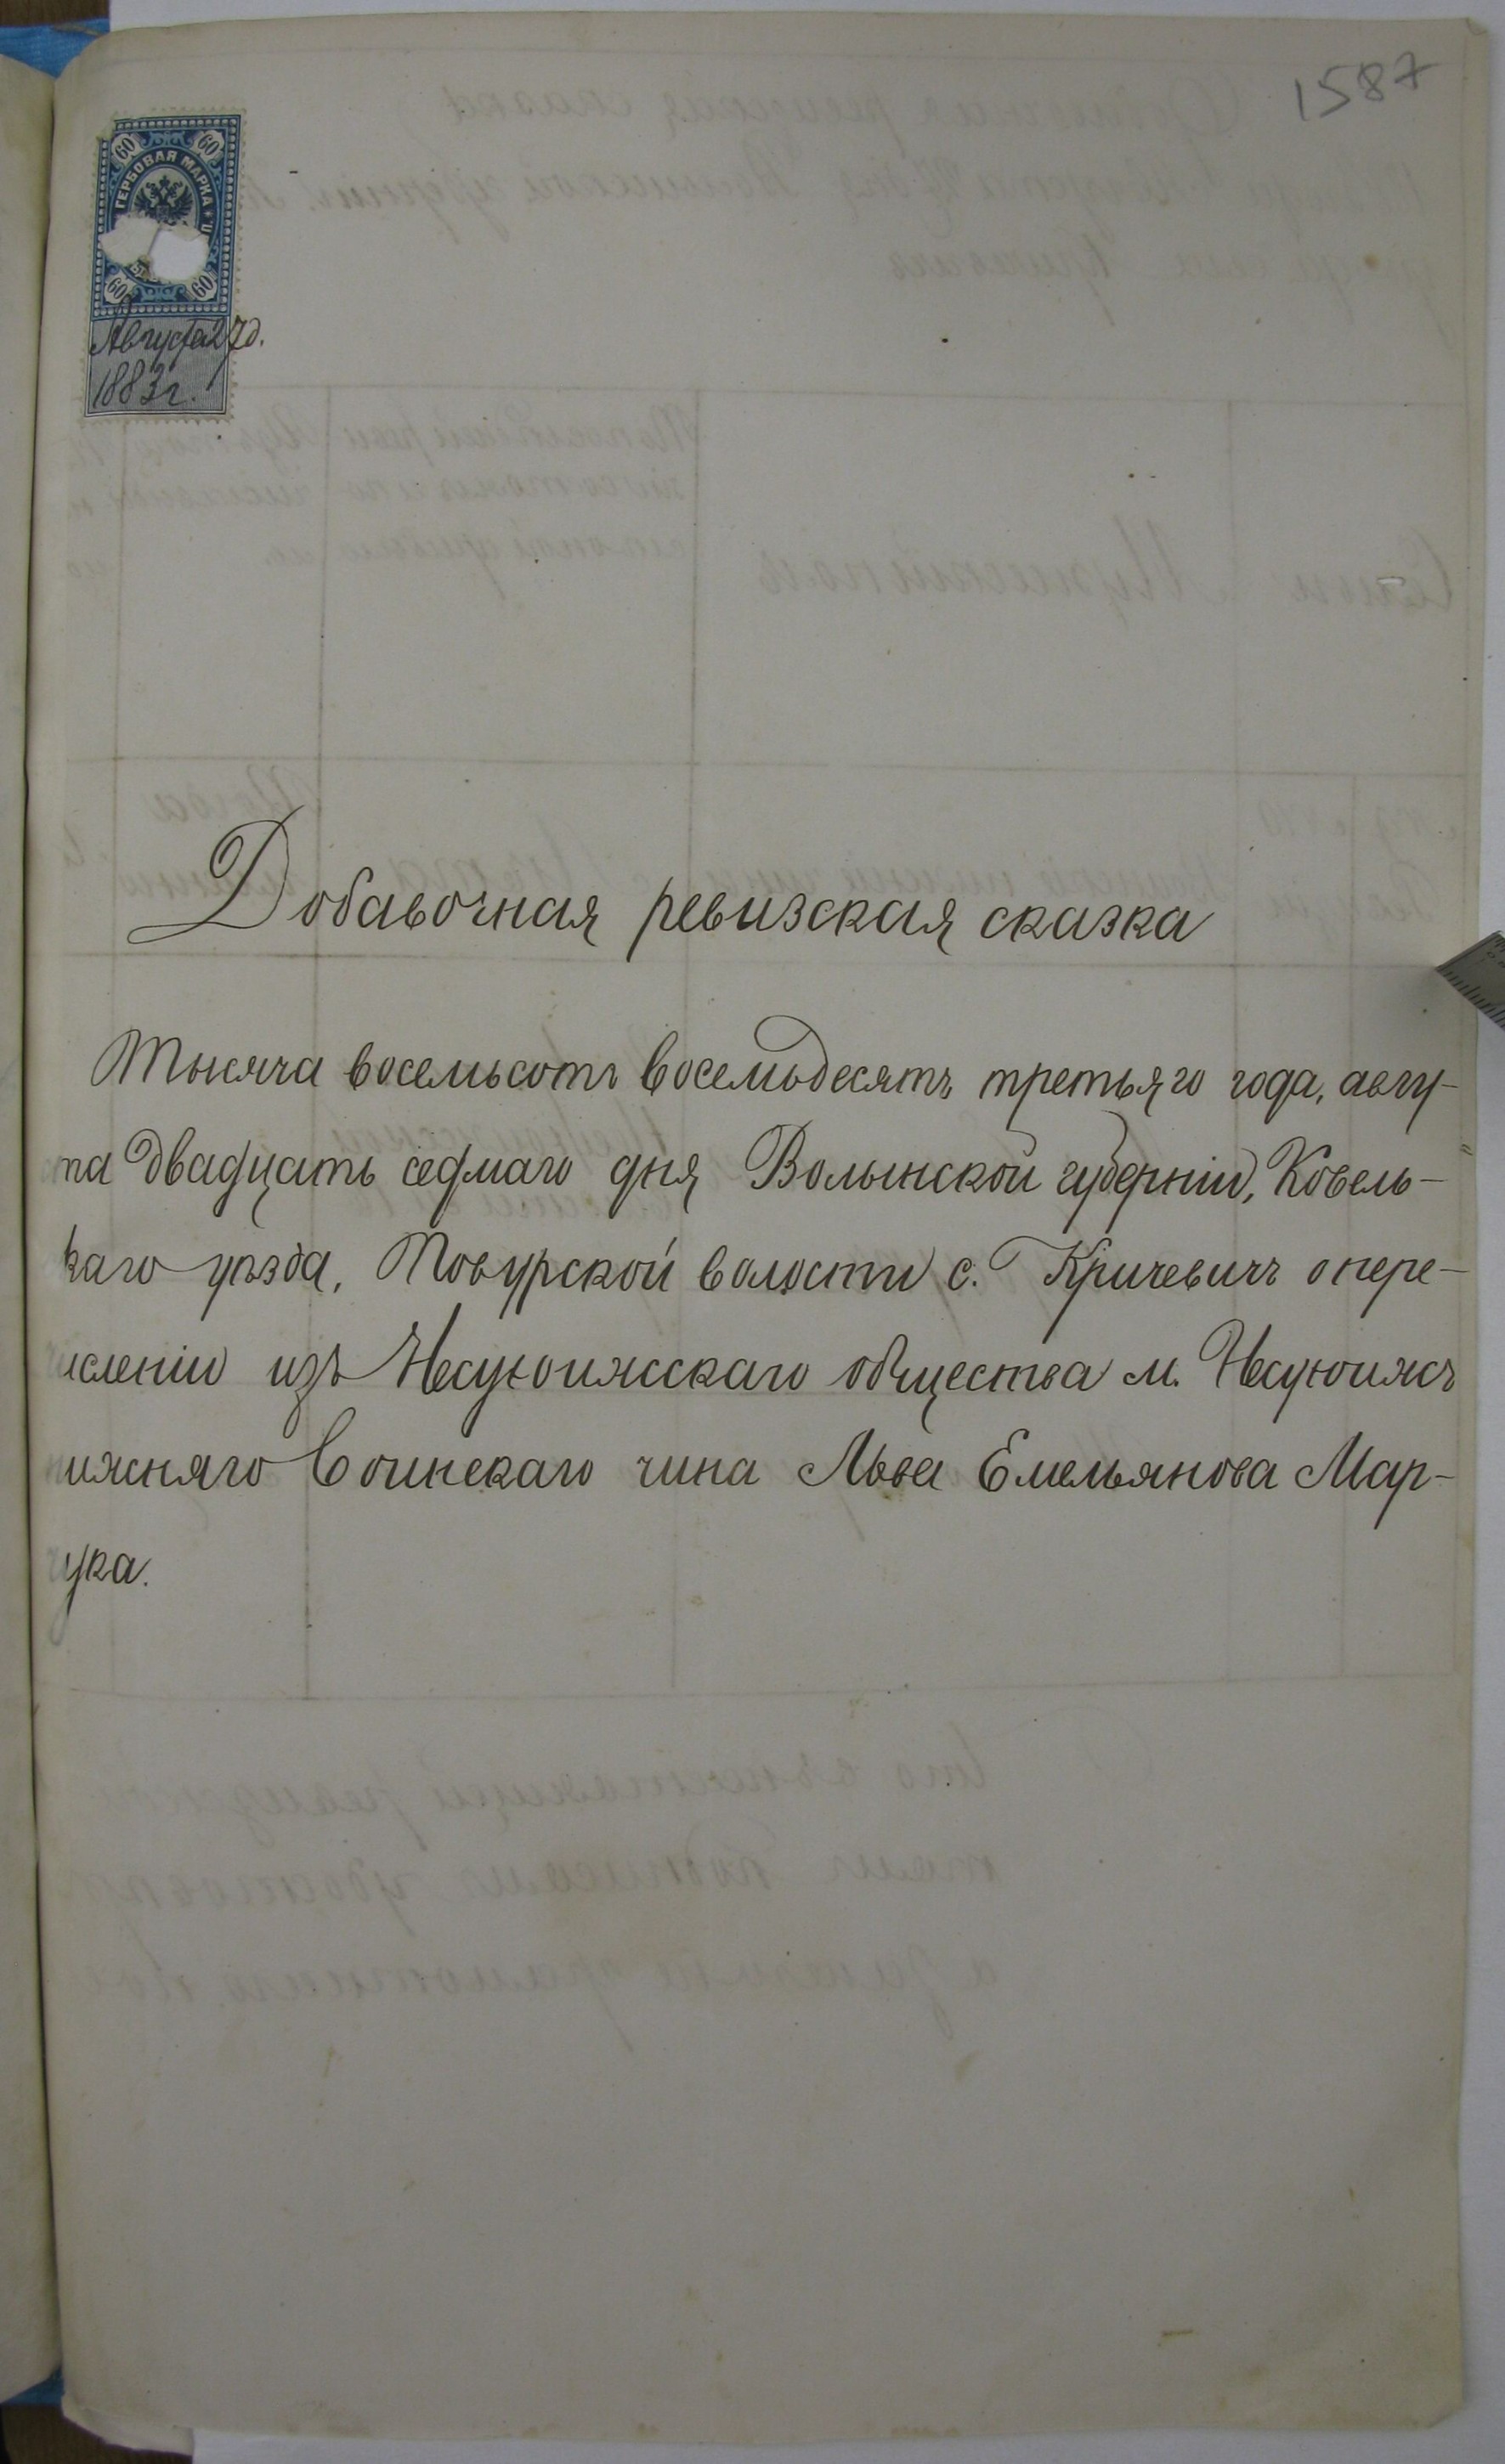 1587
60 60
ГЕРБОВАЯ МАРКА
60 60
Августа 27 д.
1883 г.
Добавочная ревизская сказка
Тысяча восемьсотъ восемьдесятъ третьяго года, авгу-
ста двадцать седмаго дня Волынской губерніи, Ковель-
каго уѣзда, Повурской волости с. Кричевичъ о пере-
численіи изъ Несухоижскаго общества м. Несухоижъ
нижняго воинскаго чина Льва Емельянова Мар-
чука.